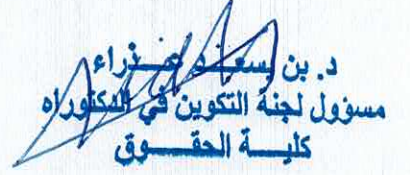 د. بن عذراء
مسؤول لجنة التكوين في الدكتوراه
كليــة الحقــوق